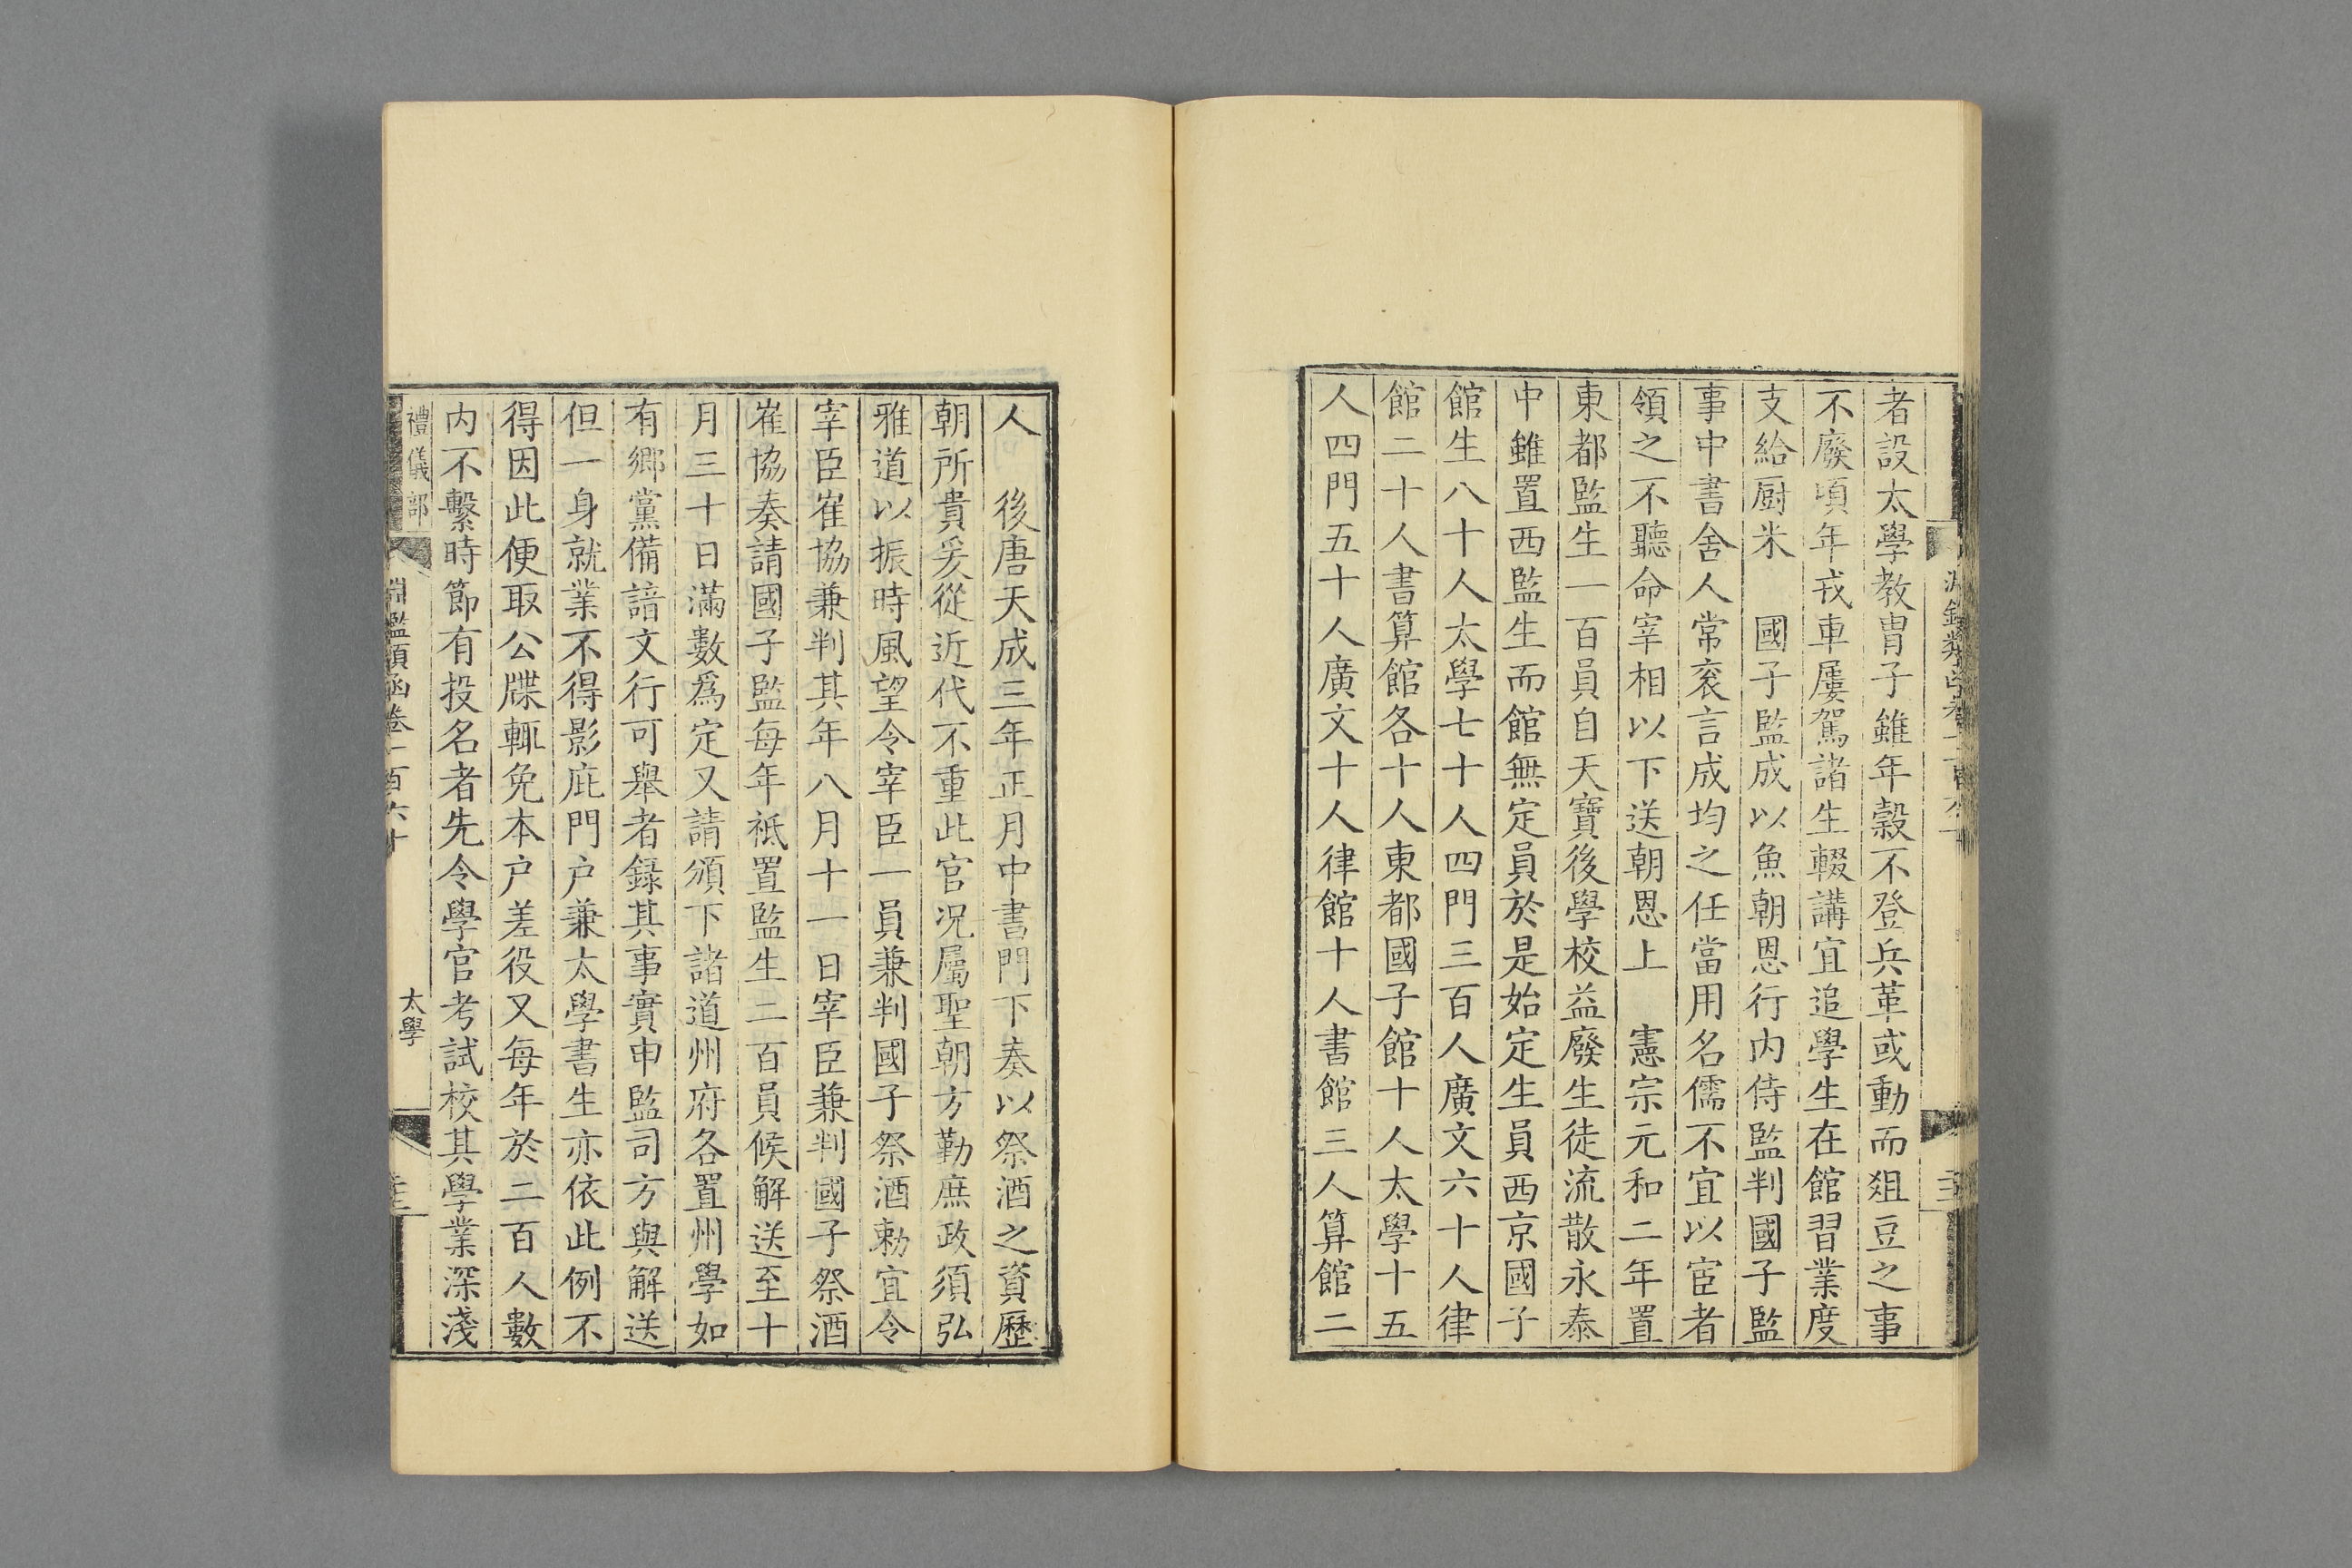 者設太學教胄子雖年穀不登兵革或動而俎豆之事
不廢頃年戎車屢駕諸生輟講宜追學生在館習業度
支給厨米　國子監成以魚朝恩行内侍監判國子監
事中書舍人常衮言成均之任當用名儒不宜以宦者
領之不聽命宰相以下送朝恩上　憲宗元和二年置
東都監生一百員自天寶後學校益廢生徒流散永泰
中雖置西監生而館無定員於是始定生員西京國子
館生八十人太學七十人四門三百人廣文六十人律
館二十人書算館各十人東都國子館十人太學十五
人四門五十人廣文十人律館十人書館三人算館二
人　後唐天成三年正月中書門下奏以祭酒之資歷
朝所貴爰從近代不重此官況屬聖朝方勤庶政須弘
雅道以振時風望令宰臣一員兼判國子祭酒勅宜令
宰臣崔協兼判其年八月十一日宰臣兼判國子祭酒
崔協奏請國子監每年祗置監生二百員候解送至十
月三十日滿數爲定又請頒下諸道州府各置州學如
有鄉黨備諳文行可舉者録其事實申監司方與解送
但一身就業不得影庇門户兼太學書生亦依此例不
得因此便取公牒輒免本户差役又每年於二百人數
内不繫時節有投名者先令學官考試校其學業深淺
禮儀部
淵鑑類函卷一百六十
太學